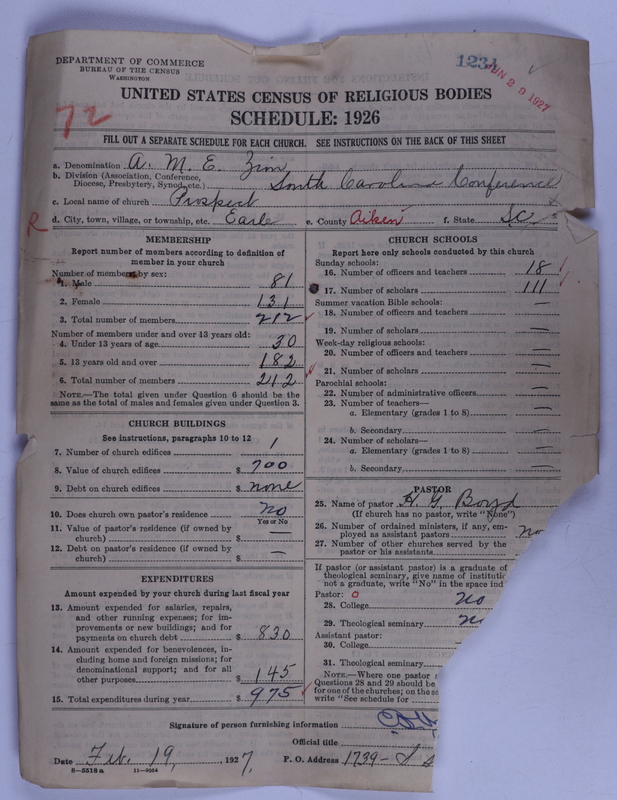 DEPARTMENT OF COMMERCE
BUREAU OF THE CENSUS
WASHINGTON
1231
JUN 29 1927
UNITED STATES CENSUS OF RELIGIOUS BODIES
SCHEDULE: 1926
72
FILL OUT A SEPARATE SCHEDULE FOR EACH CHURCH. SEE INSTRUCTIONS ON THE BACK OF THIS SHEET
a. Denomination A. M. E. Zion
b. Division (Association, Conference, Diocese, Presbytery, Synod, etc.) South Carolina Conference
c. Local name of church Prospect
R
d. City, town, village, or township, etc. Earle e. County Aiken f. State SC
MEMBERSHIP
Report number of members according to definition of
member in your church
Number of members by sex:
1. Male 81
2. Female 131
3. Total number of members 212
Number of members under and over 13 years old:
4. Under 13 years of age 30
5. 13 years old and over 182
6. Total number of members 212
NOTE.—The total given under Question 6 should be the
same as the total of males and females given under Question 3.
CHURCH BUILDINGS
See instructions, paragraphs 10 to 12
7. Number of church edifices 1
8. Value of church edifices $ 700
9. Debt on church edifices $ none
10. Does church own pastor's residence no
Yes or No
11. Value of pastor's residence (if owned by
church) $ —
12. Debt on pastor's residence (if owned by
church) $ —
EXPENDITURES
Amount expended by your church during last fiscal year
13. Amount expended for salaries, repairs,
and other running expenses; for im-
provements or new buildings; and for
payments on church debt $ 830
14. Amount expended for benevolences, in-
cluding home and foreign missions; for
denominational support; and for all
other purposes $ 145
15. Total expenditures during year $ 975
CHURCH SCHOOLS
Report here only schools conducted by this church
Sunday schools:
16. Number of officers and teachers 18
17. Number of scholars 111
Summer vacation Bible schools:
18. Number of officers and teachers —
19. Number of scholars —
Week-day religious schools:
20. Number of officers and teachers —
21. Number of scholars —
Parochial schools:
22. Number of administrative officers —
23. Number of teachers—
a. Elementary (grades 1 to 8) —
b. Secondary —
24. Number of scholars—
a. Elementary (grades 1 to 8) —
b. Secondary —
PASTOR
25. Name of pastor H. G. Boyd
(If church has no pastor, write "None")
26. Number of ordained ministers, if any, em-
ployed as assistant pastors no
27. Number of other churches served by the
pastor or his assistants
If pastor (or assistant pastor) is a graduate of
theological seminary, give name of instituti
not a graduate, write "No" in the space ind
Pastor:
28. College no
29. Theological seminary
Assistant pastor:
30. College
31. Theological seminary
NOTE.—Where one pastor s
Questions 28 and 29 should be
for one of the churches; on the sc
write "See schedule for
Signature of person furnishing information
Official title
Date Feb. 19, 1927, P. O. Address 1739-
8—5518 a 11—9054